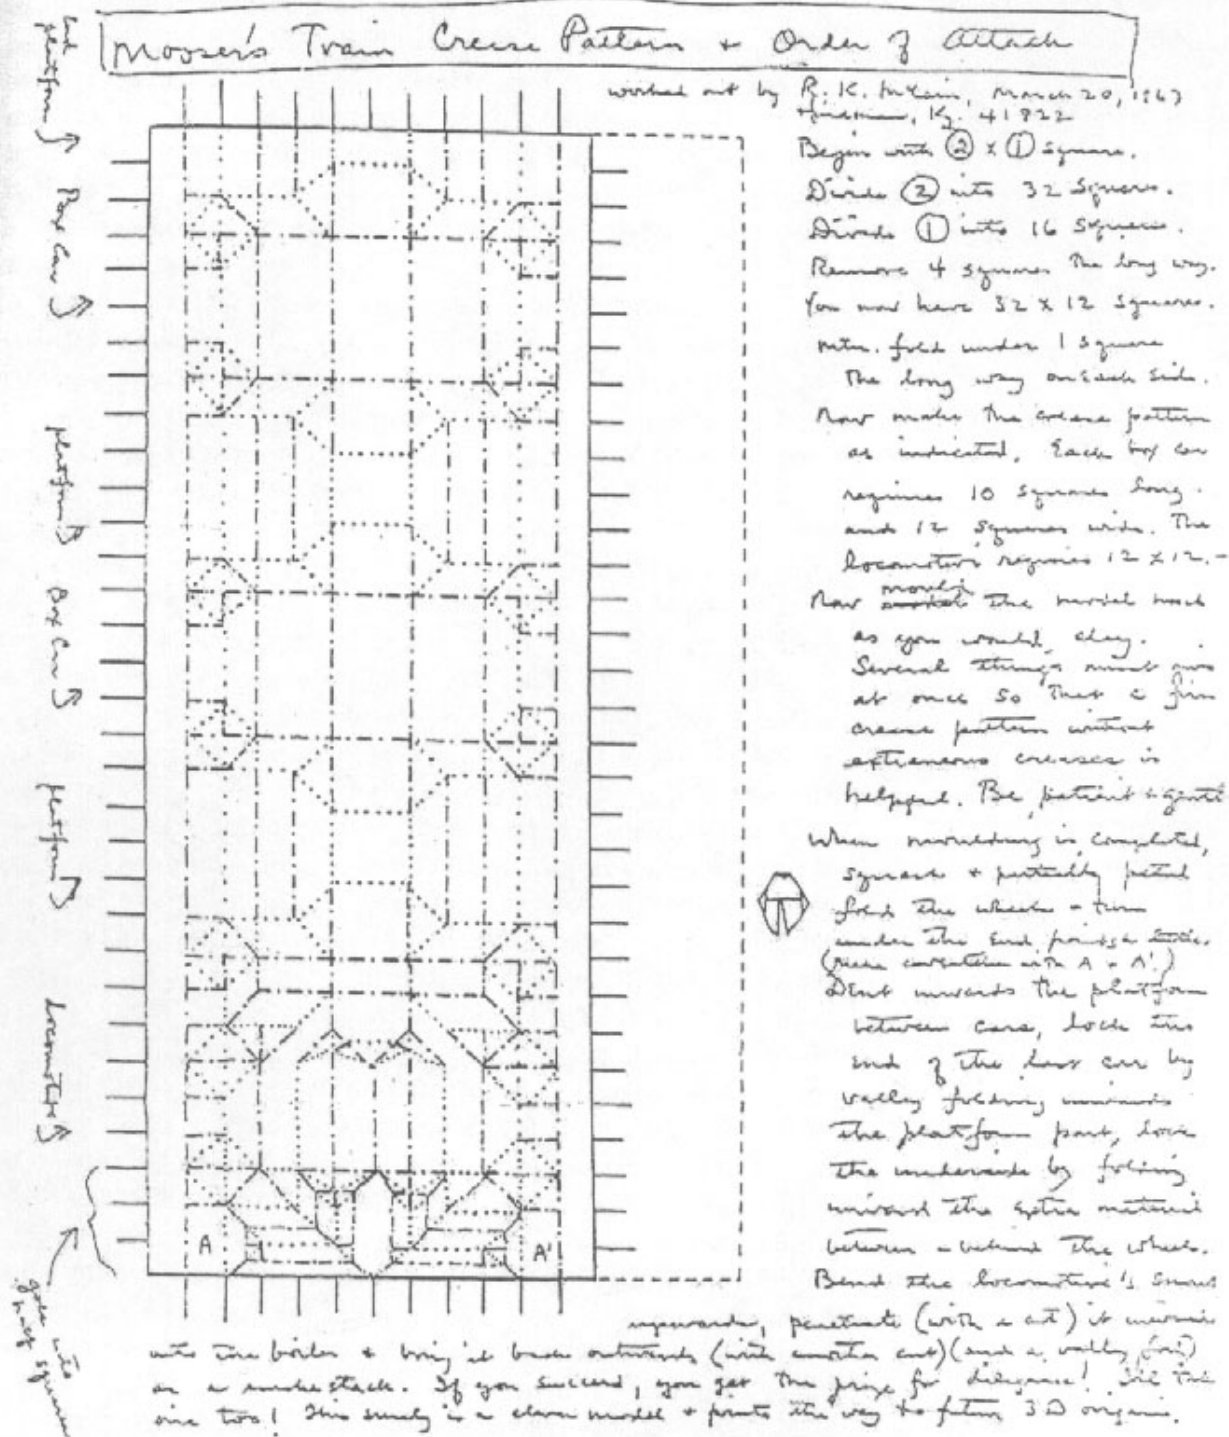 Mooser's Train Crease Pattern + Order of Attack
worked out by R. K. McLain, March 20, 1967
Hindman, Ky. 41822
Begin with ② x ① square.
Divide ② into 32 squares.
Divide ① into 16 squares.
Remove 4 squares the long way.
You now have 32 x 12 squares.
mtn. fold under 1 square
the long way on each side.
Now make the crease pattern
as indicated. Each box car
requires 10 squares long
and 12 squares wide. The
locomotive requires 12 x 12.
Now mould the model much
as you would clay.
Several things must move
at once so that a firm
crease pattern without
extraneous creases is
helpful. Be patient + gentle
When moulding is completed,
squash + partially petal
fold the wheels + turn
under the end points
(A + A'.)
Dent inwards the platform
between cars, lock the
end of the last car by
valley folding inwards
the platform part, lock
the underside by folding
inward the extra material
between + behind the wheels.
Bend the locomotive's snout
upwards, penetrate (with a cut) it inwards
into the boiler + bring it back outwards (with another cut) (and a valley fold)
as a smokestack. If you succeed, you get the prize for diligence!
one too! This surely is a clever model + points the way to future 3D origami.
End platform
Box Car
platform
Box Car
platform
locomotive
goes into half squares
A
A'